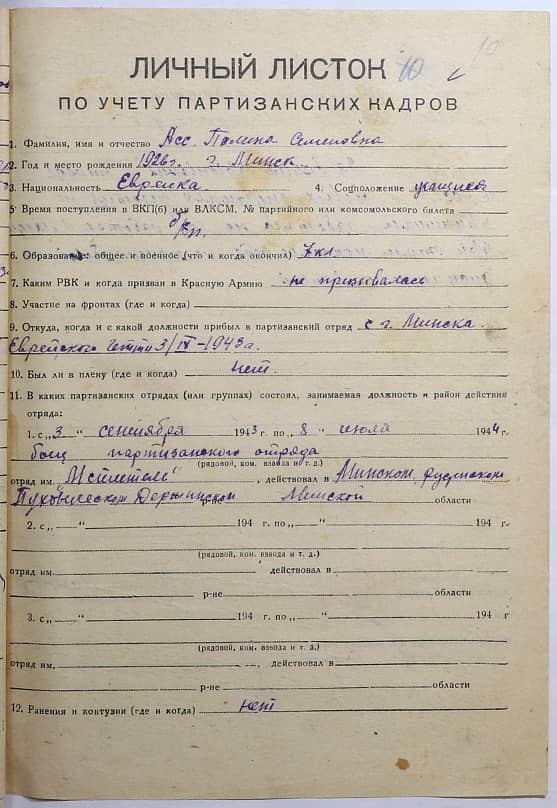 10
10
ЛИЧНЫЙ ЛИСТОК
ПО УЧЕТУ ПАРТИЗАНСКИХ КАДРОВ
1. Фамилия, имя и отчество Асс Полина Семеновна
2. Год и место рождения 1926 г. г. Минск
3. Национальность Еврейка 4. Соцположение учащаяся
5 Время поступления в ВКП(б) или ВЛКСМ, № партийного или комсомольского билета
б/п.
6. Образование: общее и военное (что и когда окончил) 7 кл
7. Каким РВК и когда призван в Красную Армию не призывалась
8. Участие на фронтах (где и когда)
9. Откуда, когда и с какой должности прибыл в партизанский отряд с г. Минска
Еврейского гетти 3/IX-1943 г.
10. Был ли в плену (где и когда) нет
11. В каких партизанских отрядах (или группах) состоял, занимаемая должность и район действия
отряда:
1. с „3“ сентября 1943 г. по „8“ июля 1944 г.
боец партизанского отряда
(рядовой, ком. взвода и т. д.)
отряд им. „Мститель“, действовал в Минском, Руденском
Пуховическом Дзержинском р-не Минской области
2. с „ “ 194 г. по „ “ 194 г.
(рядовой, ком. взвода и т. д.)
отряд им. , действовал в
р-не области
3. с „ “ 194 г. по „ “ 194 г
(рядовой, ком. взвода и т. д.)
отряд им. , действовал в
р-не области
12. Ранения и контузии (где и когда) нет